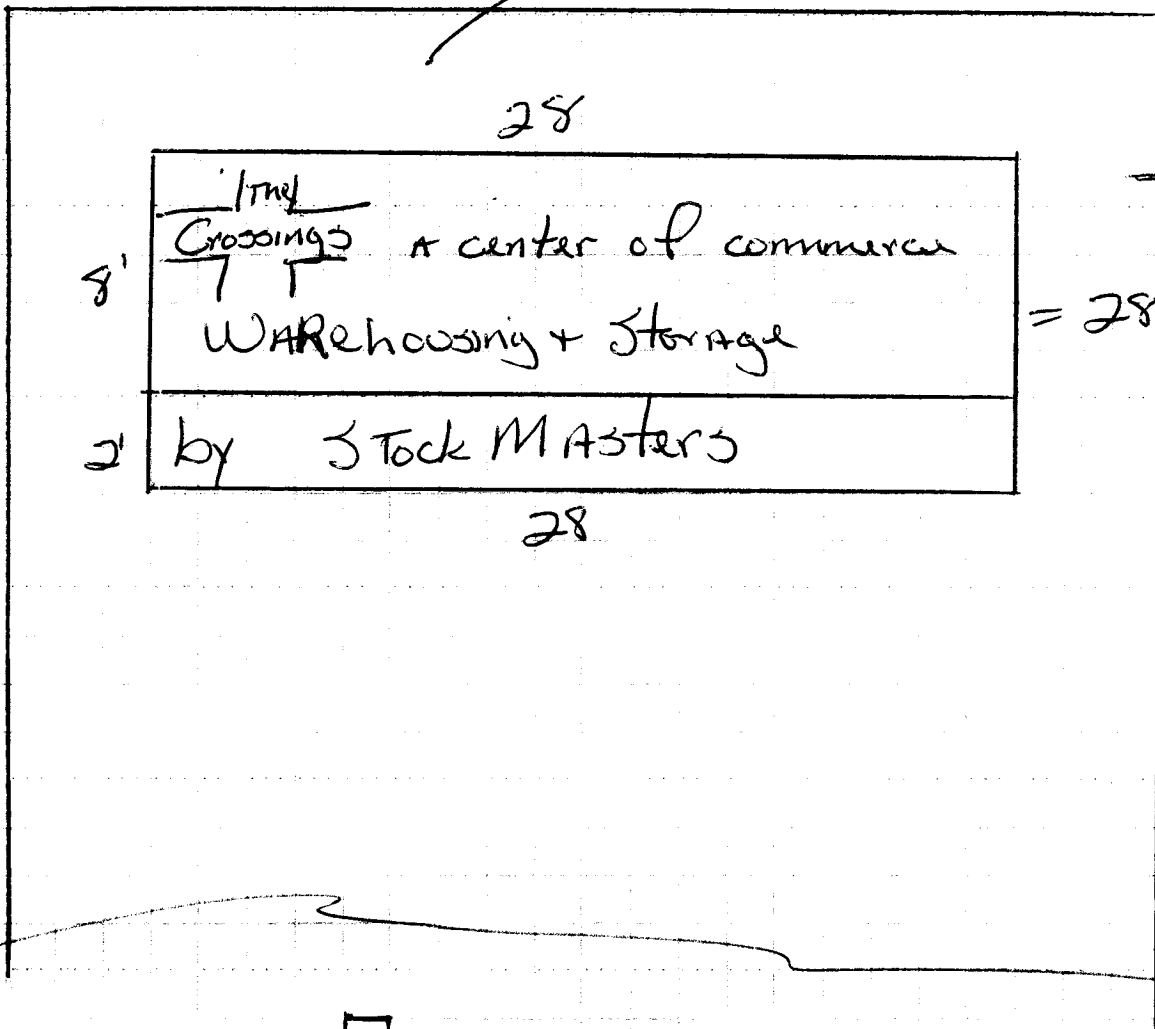 28
The
Crossings A center of commerce
8'
WAREhousing + Storage
= 28
2' by Stock MAsters
28